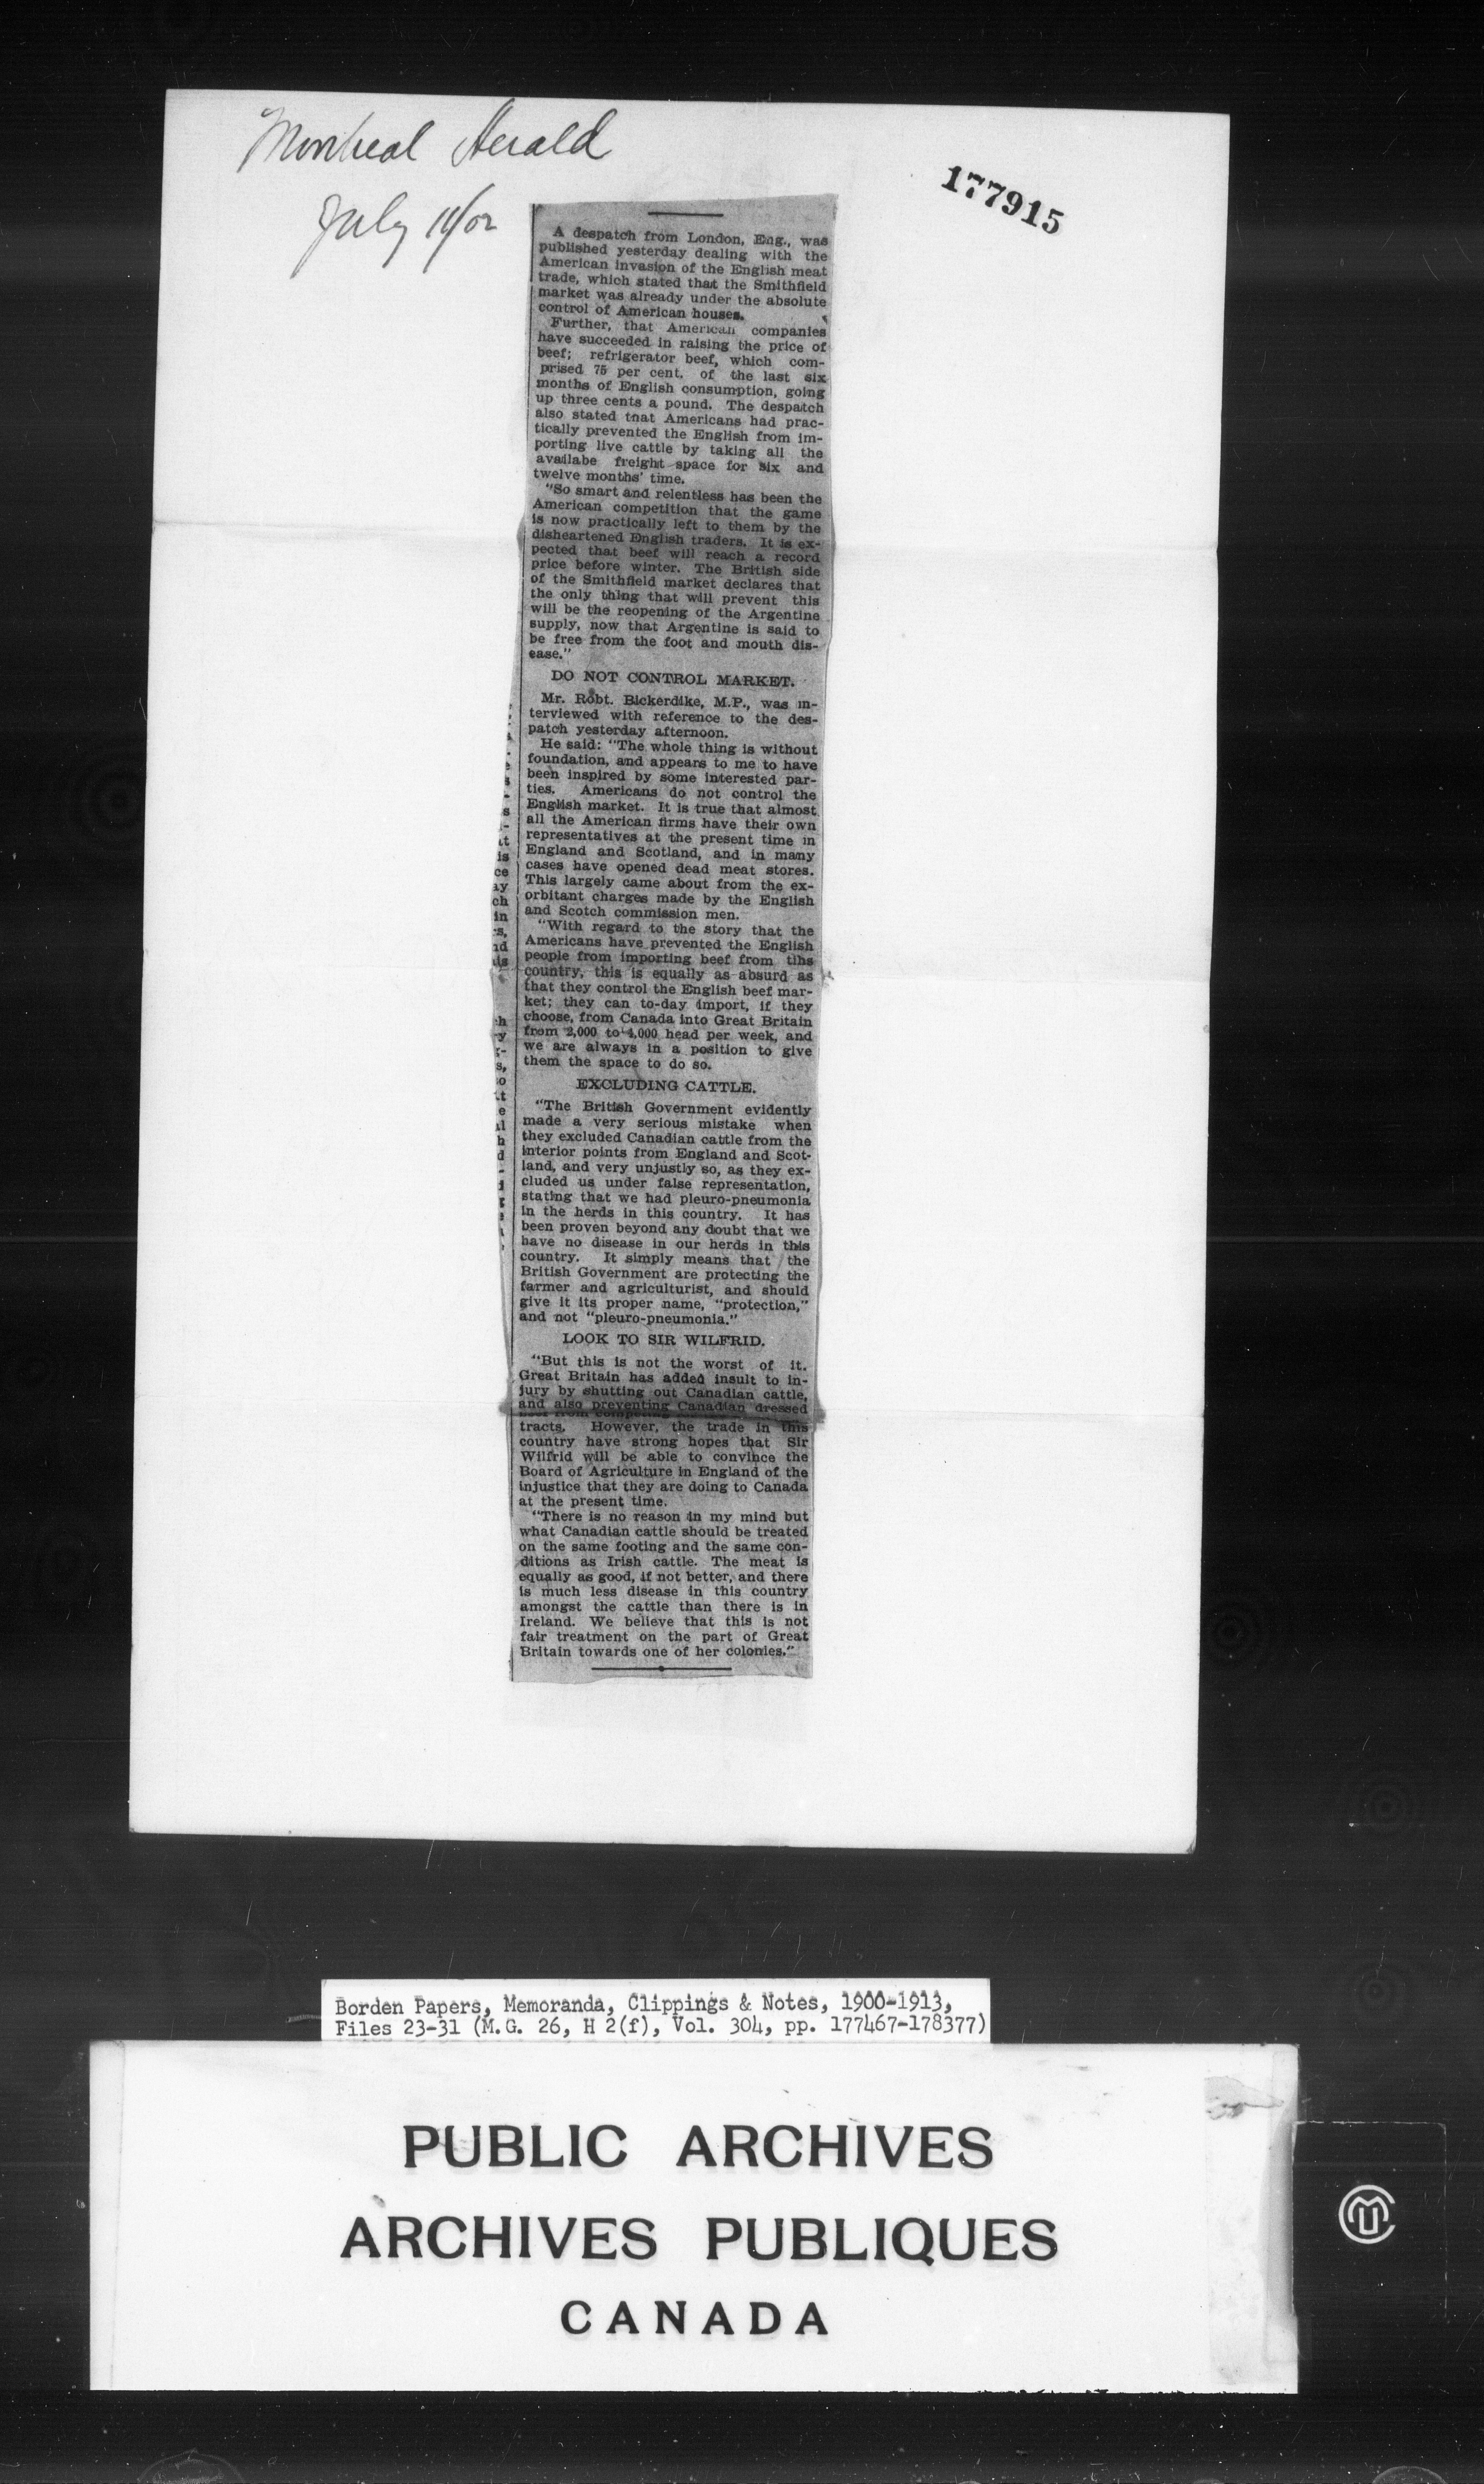 Montreal Herald
July 11/02
177915
A despatch from London, Eng., was
published yesterday dealing with the
American invasion of the English meat
trade, which stated that the Smithfield
market was already under the absolute
control of American houses.
Further, that American companies
have succeeded in raising the price of
beef; refrigerator beef, which com-
prised 75 per cent. of the last six
months of English consumption, going
up three cents a pound. The despatch
also stated tnat Americans had prac-
tically prevented the English from im-
porting live cattle by taking all the
availabe freight space for six and
twelve months' time.
"So smart and relentless has been the
American competition that the game
is now practically left to them by the
disheartened English traders. It is ex-
pected that beef will reach a record
price before winter. The British side
of the Smithfield market declares that
the only thing that will prevent this
will be the reopening of the Argentine
supply, now that Argentine is said to
be free from the foot and mouth dis-
ease."
DO NOT CONTROL MARKET.
Mr. Robt. Bickerdike, M.P., was in-
terviewed with reference to the des-
patch yesterday afternoon.
He said: "The whole thing is without
foundation, and appears to me to have
been inspired by some interested par-
ties. Americans do not control the
English market. It is true that almost
all the American firms have their own
representatives at the present time in
England and Scotland, and in many
cases have opened dead meat stores.
This largely came about from the ex-
orbitant charges made by the English
and Scotch commission men.
"With regard to the story that the
Americans have prevented the English
people from importing beef from tihs
country, this is equally as absurd as
that they control the English beef mar-
ket; they can to-day import, if they
choose, from Canada into Great Britain
from 2,000 to 4,000 head per week, and
we are always in a position to give
them the space to do so.
EXCLUDING CATTLE.
"The British Government evidently
made a very serious mistake when
they excluded Canadian cattle from the
interior points from England and Scot-
land, and very unjustly so, as they ex-
cluded us under false representation,
stating that we had pleuro-pneumonia
in the herds in this country. It has
been proven beyond any doubt that we
have no disease in our herds in this
country. It simply means that the
British Government are protecting the
farmer and agriculturist, and should
give it its proper name, "protection,"
and not "pleuro-pneumonia."
LOOK TO SIR WILFRID.
"But this is not the worst of it.
Great Britain has added insult to in-
jury by shutting out Canadian cattle,
and also preventing Canadian dressed
beef from competing
tracts. However, the trade in this
country have strong hopes that Sir
Wilfrid will be able to convince the
Board of Agriculture in England of the
injustice that they are doing to Canada
at the present time.
"There is no reason in my mind but
what Canadian cattle should be treated
on the same footing and the same con-
ditions as Irish cattle. The meat is
equally as good, if not better, and there
is much less disease in this country
amongst the cattle than there is in
Ireland. We believe that this is not
fair treatment on the part of Great
Britain towards one of her colonies."
Borden Papers, Memoranda, Clippings & Notes, 1900-1913,
Files 23-31 (M.G. 26, H 2(f), Vol. 304, pp. 177467-178377)
PUBLIC ARCHIVES
ARCHIVES PUBLIQUES
CANADA